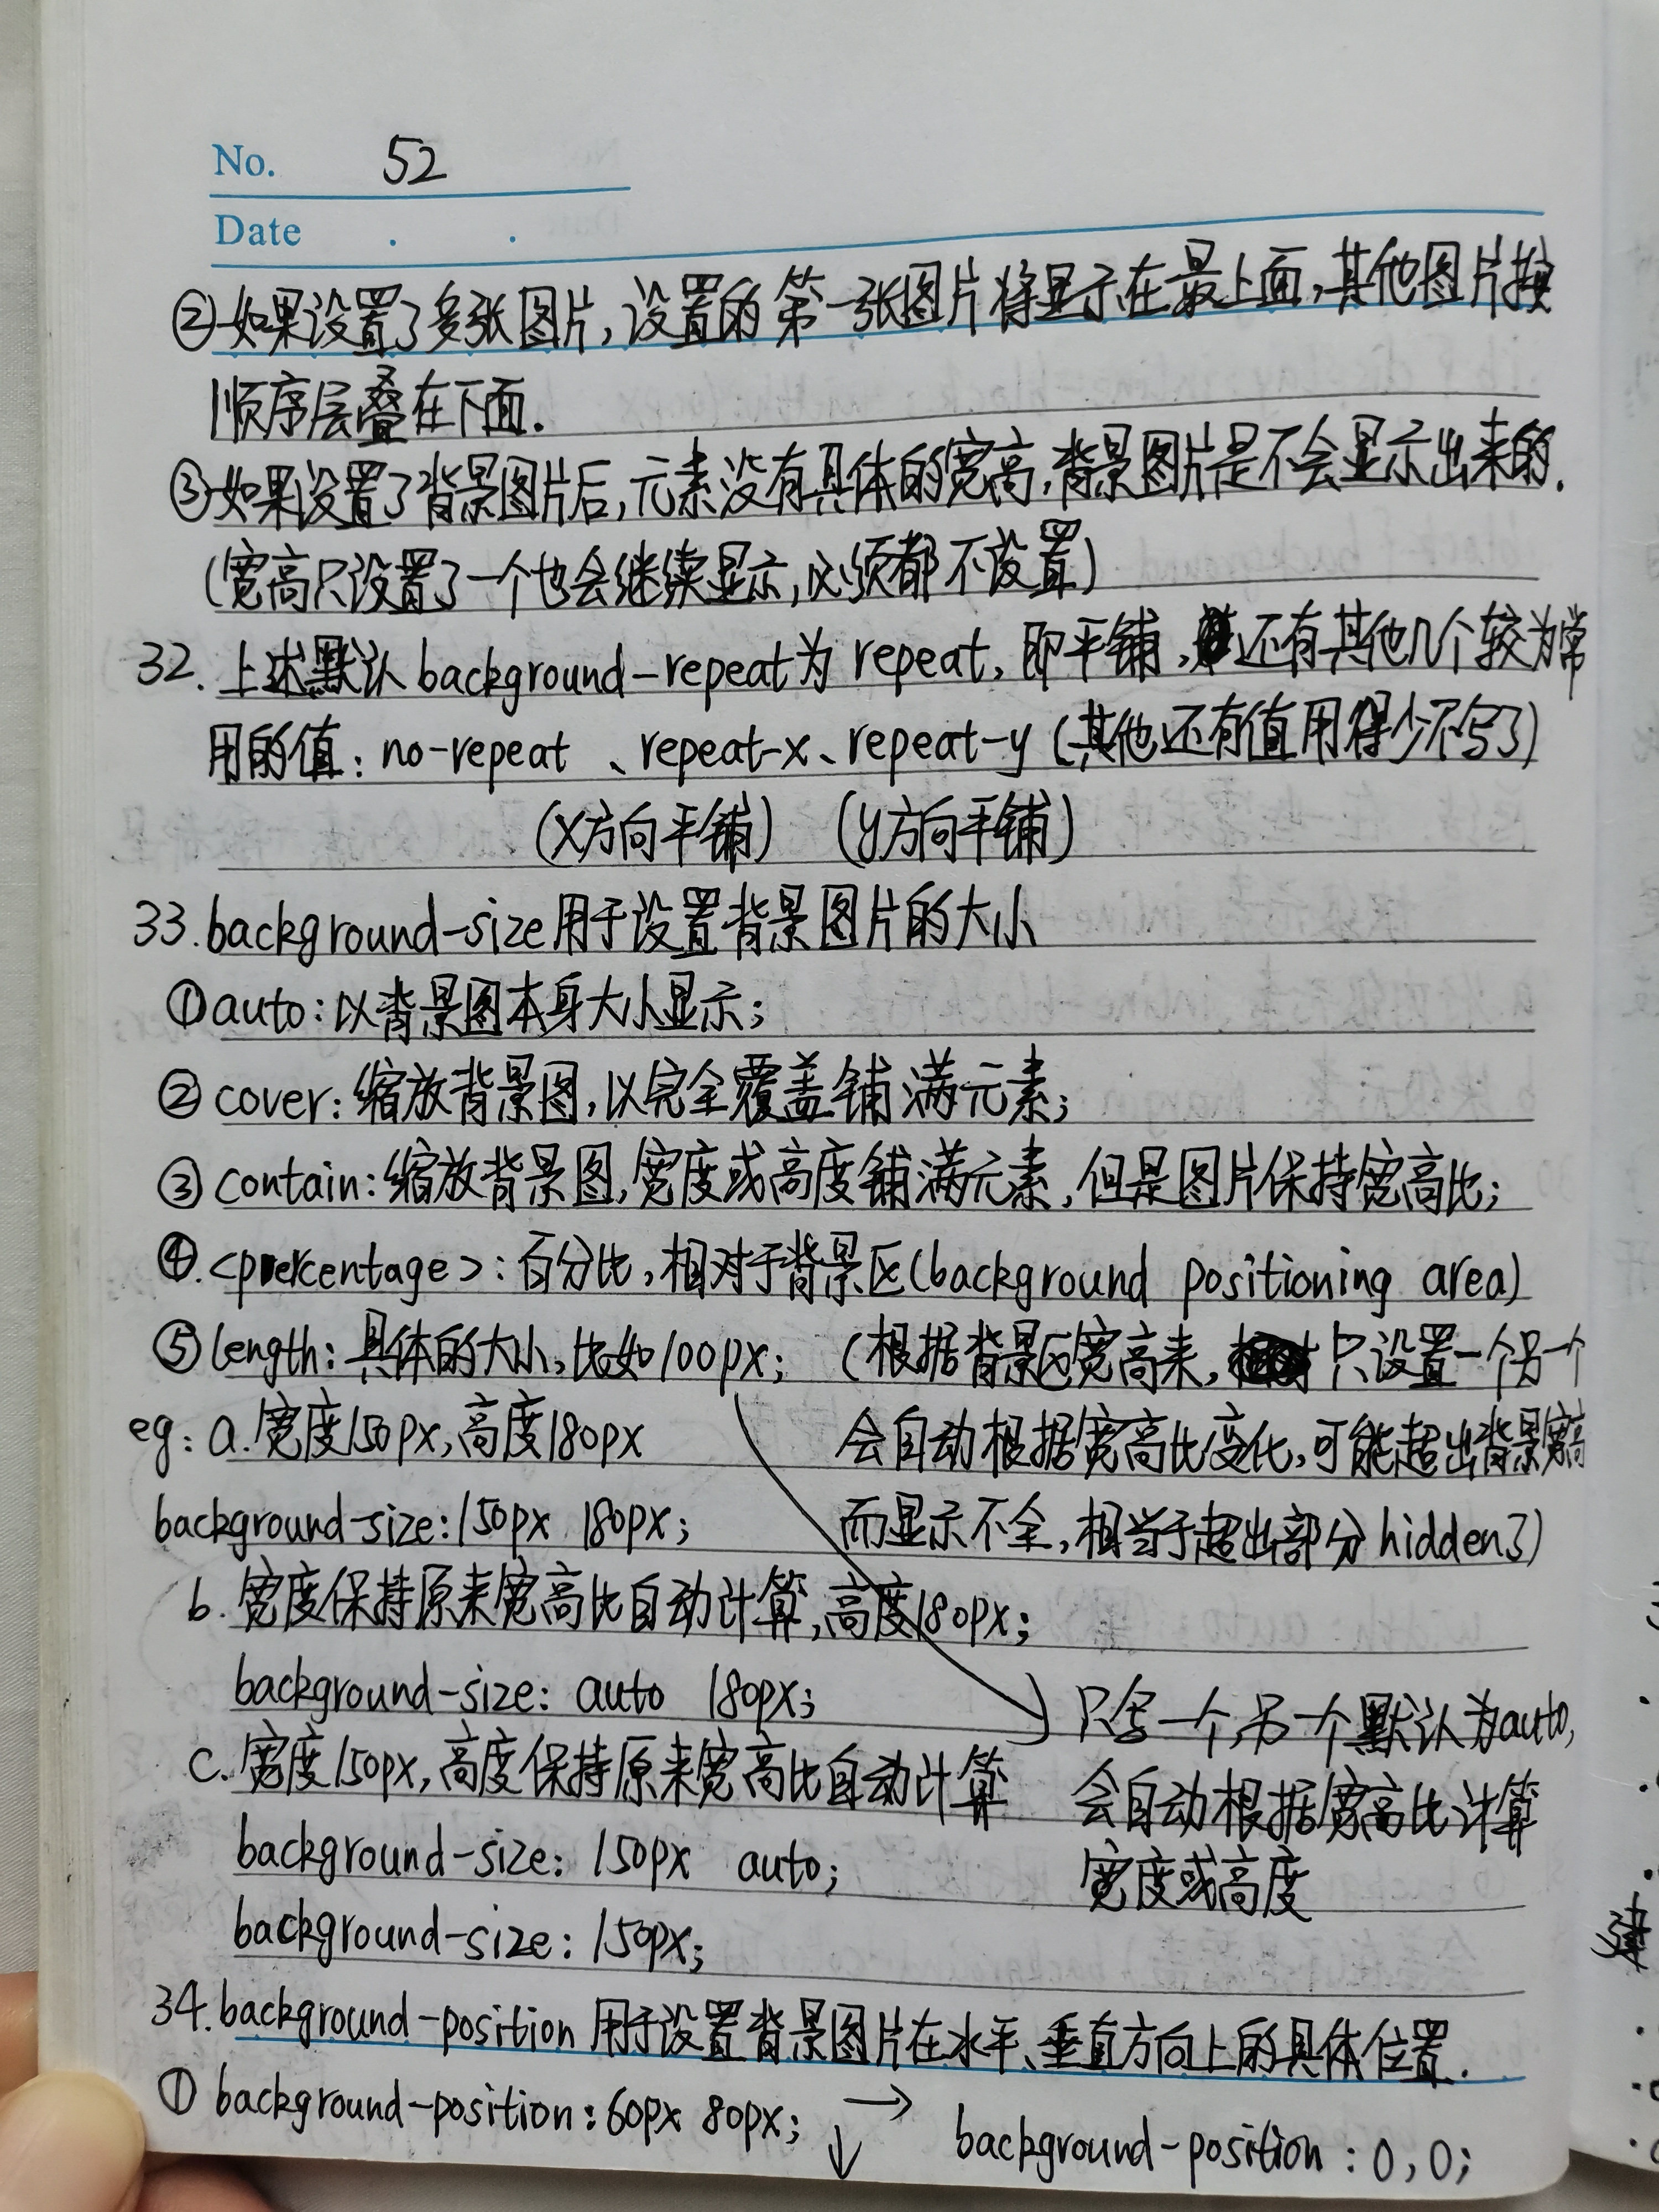 No. 52
Date . .
②如果设置了多张图片,设置的第一张图片将显示在最上面,其他图片按
顺序层叠在下面.
③如果设置了背景图片后,元素没有具体的宽高,背景图片是不会显示出来的.
(宽高只设置了一个也会继续显示,必须都不设置)
32. 上述默认background-repeat为repeat,即平铺,还有其他几个较为常
用的值: no-repeat 、repeat-x、repeat-y (其他还有值用得少不写了)
(X方向平铺) (y方向平铺)
33.background-size用于设置背景图片的大小
①auto:以背景图本身大小显示;
②cover:缩放背景图,以完全覆盖铺满元素;
③contain:缩放背景图,宽度或高度铺满元素,但是图片保持宽高比;
④.<percentage>:百分比,相对于背景区(background positioning area)
⑤length:具体的大小,比如100px; (根据背景区宽高来,只设置一个另一个
eg: a.宽度150px,高度180px 会自动根据宽高比变化,可能超出背景宽高
background-size:150px 180px; 而显示不全,相当于超出部分hidden了)
b.宽度保持原来宽高比自动计算,高度180px;
background-size: auto 180px; 只写一个,另一个默认为auto,
c.宽度150px,高度保持原来宽高比自动计算 会自动根据宽高比计算
background-size: 150px auto; 宽度或高度
background-size: 150px;
34.background-position用于设置背景图片在水平、垂直方向上的具体位置.
①background-position:60px 80px; ↓ → background-position:0,0;